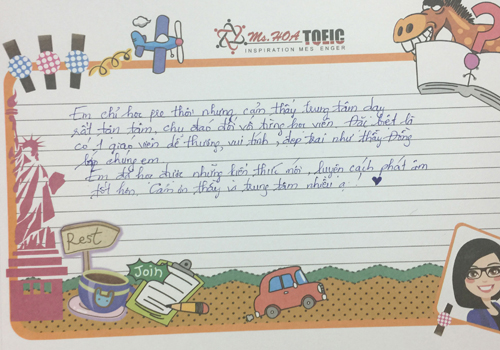 Ms.HOA TOEIC
INSPIRATION MES ENGER
Em chỉ học pre thôi nhưng cảm thấy trung tâm dạy
rất tận tâm, chu đáo đối với từng học viên. Đặc biệt là
có 1 giáo viên dễ thương, vui tính, đẹp trai như thầy Đồng
dạy chúng em.
Em đã học được những kiến thức mới, luyện cách phát âm
tốt hơn. Cảm ơn thầy và trung tâm nhiều ạ!
Rest
Join